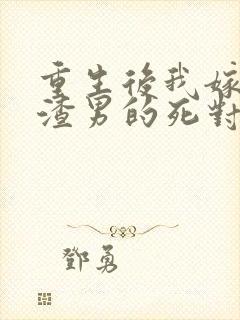 重生後我嫁
渣男的死對
鄧勇